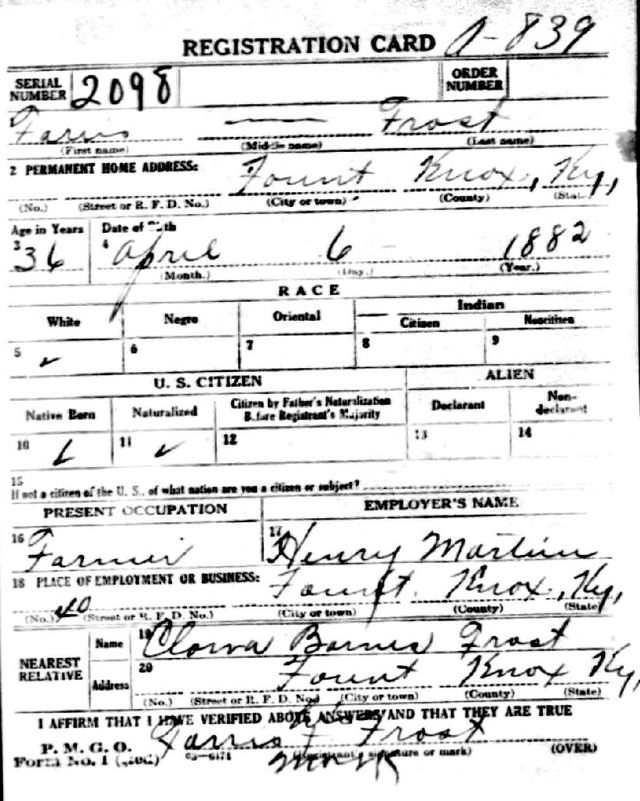 REGISTRATION CARD A-839
SERIAL NUMBER 2098 ORDER NUMBER
Farris — Frost
(First name) (Middle name) (Last name)
2 PERMANENT HOME ADDRESS: Fount Knox, Ky,
(No.) (Street or R. F. D. No.) (City or town) (County) (State)
Age in Years Date of Birth
3 36 4 April 6 1882
(Month.) (Day.) (Year.)
RACE
White Negro Oriental Indian
Citizen Noncitizen
5 ✓ 6 7 8 9
U. S. CITIZEN ALIEN
Native Born Naturalized Citizen by Father's Naturalization Before Registrant's Majority Declarant Non-declarant
10 ✓ 11 ✓ 12 13 14
15
If not a citizen of the U. S., of what nation are you a citizen or subject?
PRESENT OCCUPATION EMPLOYER'S NAME
16 Farmer 17 Henry Martin
18 PLACE OF EMPLOYMENT OR BUSINESS: Fount. Knox, Ky,
(No.) 40 (Street or R. F. D. No.) (City or town) (County) (State)
NEAREST RELATIVE Name 19 Barnes Frost
Address 20 Fount Knox Ky,
(No.) (Street or R. F. D. No.) (City or town) (County) (State)
I AFFIRM THAT I HAVE VERIFIED ABOVE ANSWERS AND THAT THEY ARE TRUE
P. M. G. O.
Form No. 1 (Red) 03-6171 Farris his Frost
mark (Registrant's signature or mark) (OVER)